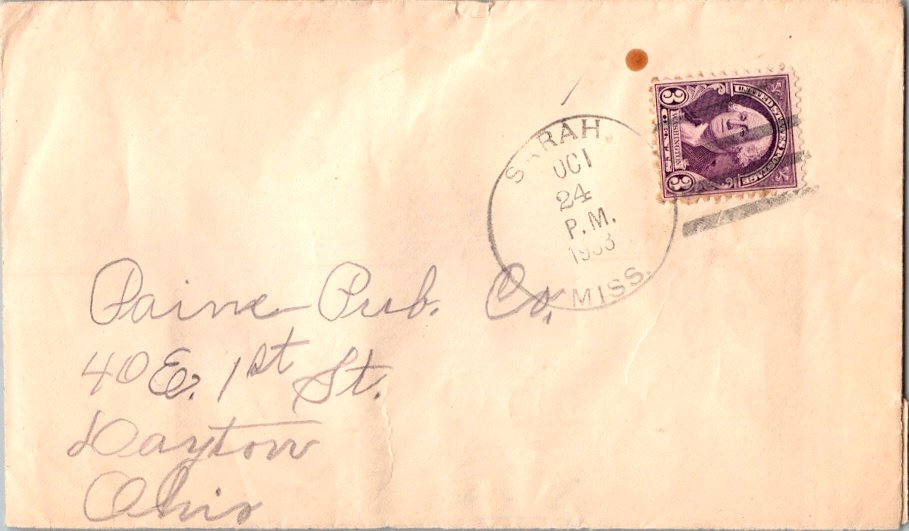 SARAH
OCT
24
P.M.
1933
MISS.
UNITED STATES POSTAGE
3 CENTS 3
WASHINGTON
Paine Pub. Co.
40 E. 1st St.
Dayton
Ohio